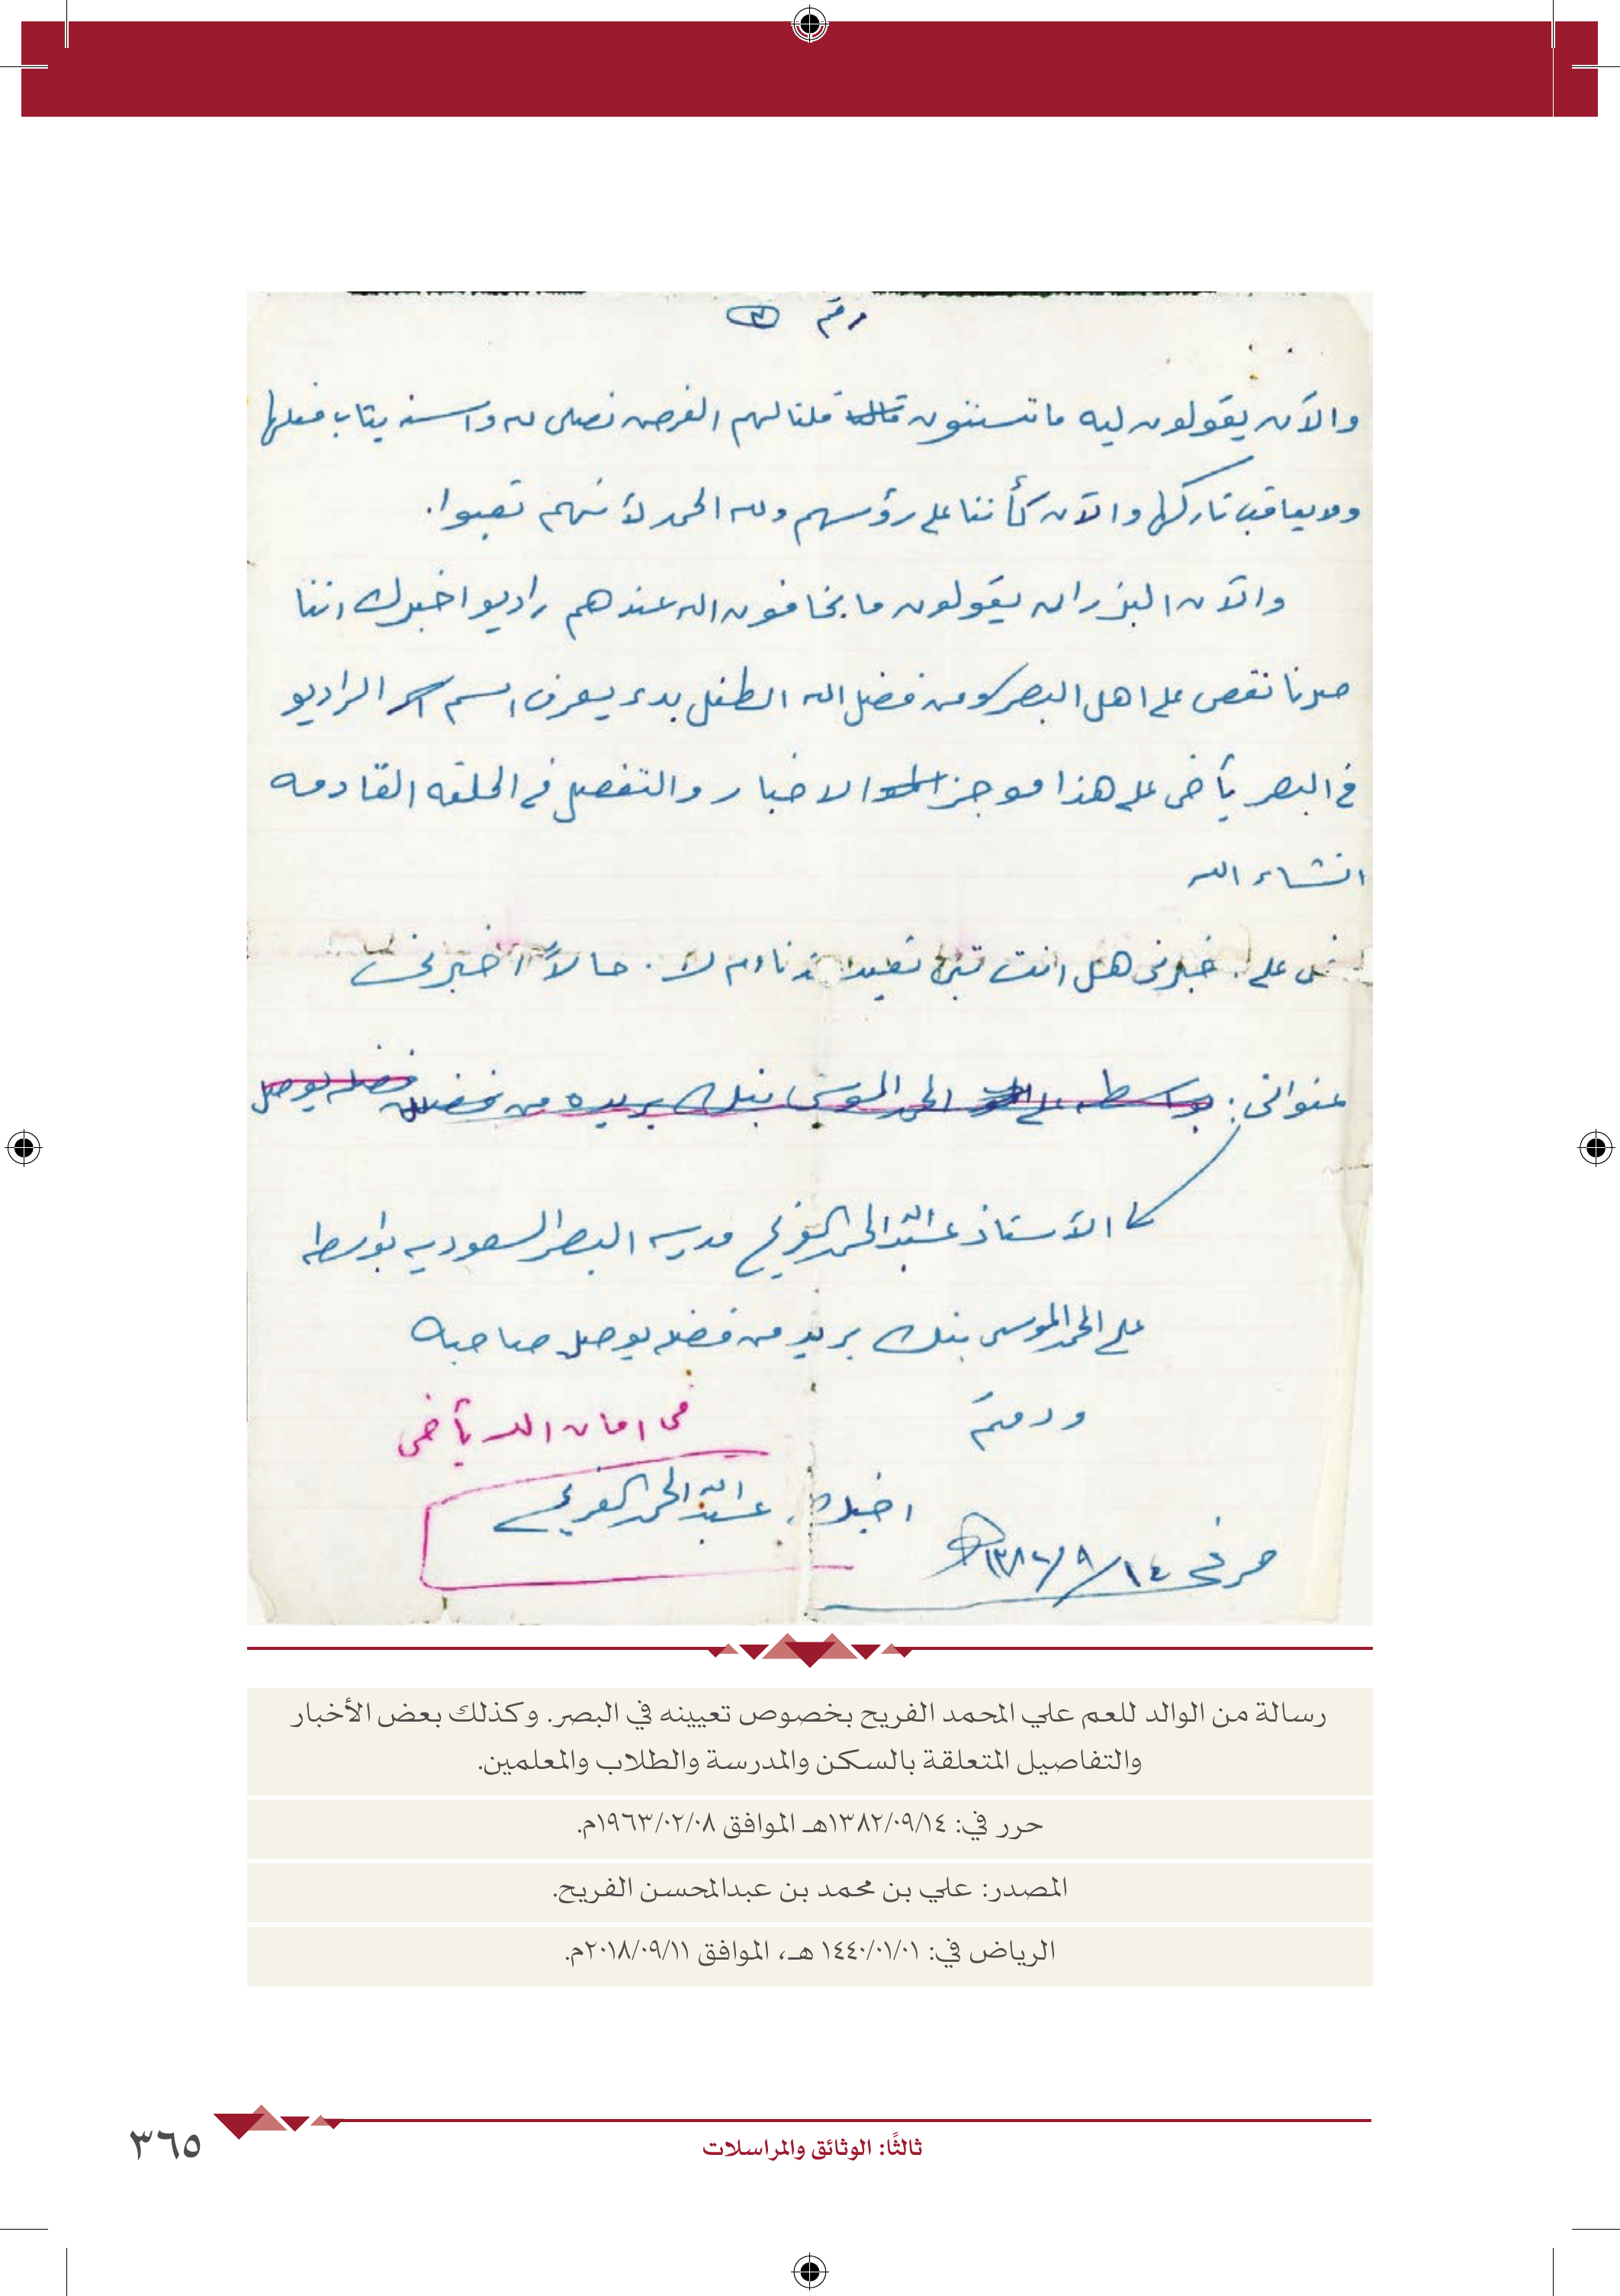 رقم ٣
والآن يقولون ليه ما تسننون قلنا لهم الفرض نصلي لله والسنه يثاب فعلها
ولا يعاقب تاركها والآن كأننا على رؤسهم ولله الحمد لأنهم تعبوا.
والآن البزران يقولون ما يخافون الله عندهم راديو اخبرك اننا
صرنا نقص على اهل البصر ومن فضل الله الطفل بدء يعرف اسم الراديو
في البصر يأخي علي هذا موجز الاخبار والتفصيل في الحلقه القادمه
انشاء الله
علي. خبرني هل انت تبي تعيد عندنا ام لا. حالاً اخبرني
عنواني: بواسطه علي الحمد الموسى بنك بريده من فضله يوصل
الأستاذ عبدالله المحمد الفريح مدرسه البصر السعوديه بواسطه
علي الحمد الموسى بنك بريده من فضله يوصل صاحبه
ودمتم
في امان الله يأخي
اخيك. عبدالله المحمد الفريح
حرر في ١٤/٩/١٣٨٢هـ
رسالة من الوالد للعم علي المحمد الفريح بخصوص تعيينه في البصر. وكذلك بعض الأخبار
والتفاصيل المتعلقة بالسكن والمدرسة والطلاب والمعلمين.
حرر في: ١٣٨٢/٠٩/١٤هـ الموافق ١٩٦٣/٠٢/٠٨م.
المصدر: علي بن محمد بن عبدالمحسن الفريح.
الرياض في: ١٤٤٠/٠١/٠١ هـ، الموافق ٢٠١٨/٠٩/١١م.
ثالثًا: الوثائق والمراسلات
٣٦٥